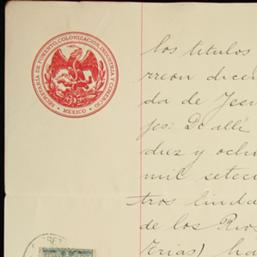 SECRETARÍA DE FOMENTO, COLONIZACIÓN, INDUSTRIA Y COMERCIO.
MÉXICO
los titulos
rreón de
da de Jesu
jos: De allí
diez y ocho
mil setec
tros linda
de los Rios
Frias) ha